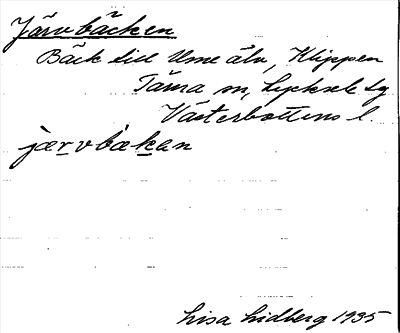 Järvbäcken
Bäck till Ume älv, Klippen
Tärna sn, Lycksele lg
Västerbottens l.
jærvbækan
Lisa Lidberg 1935